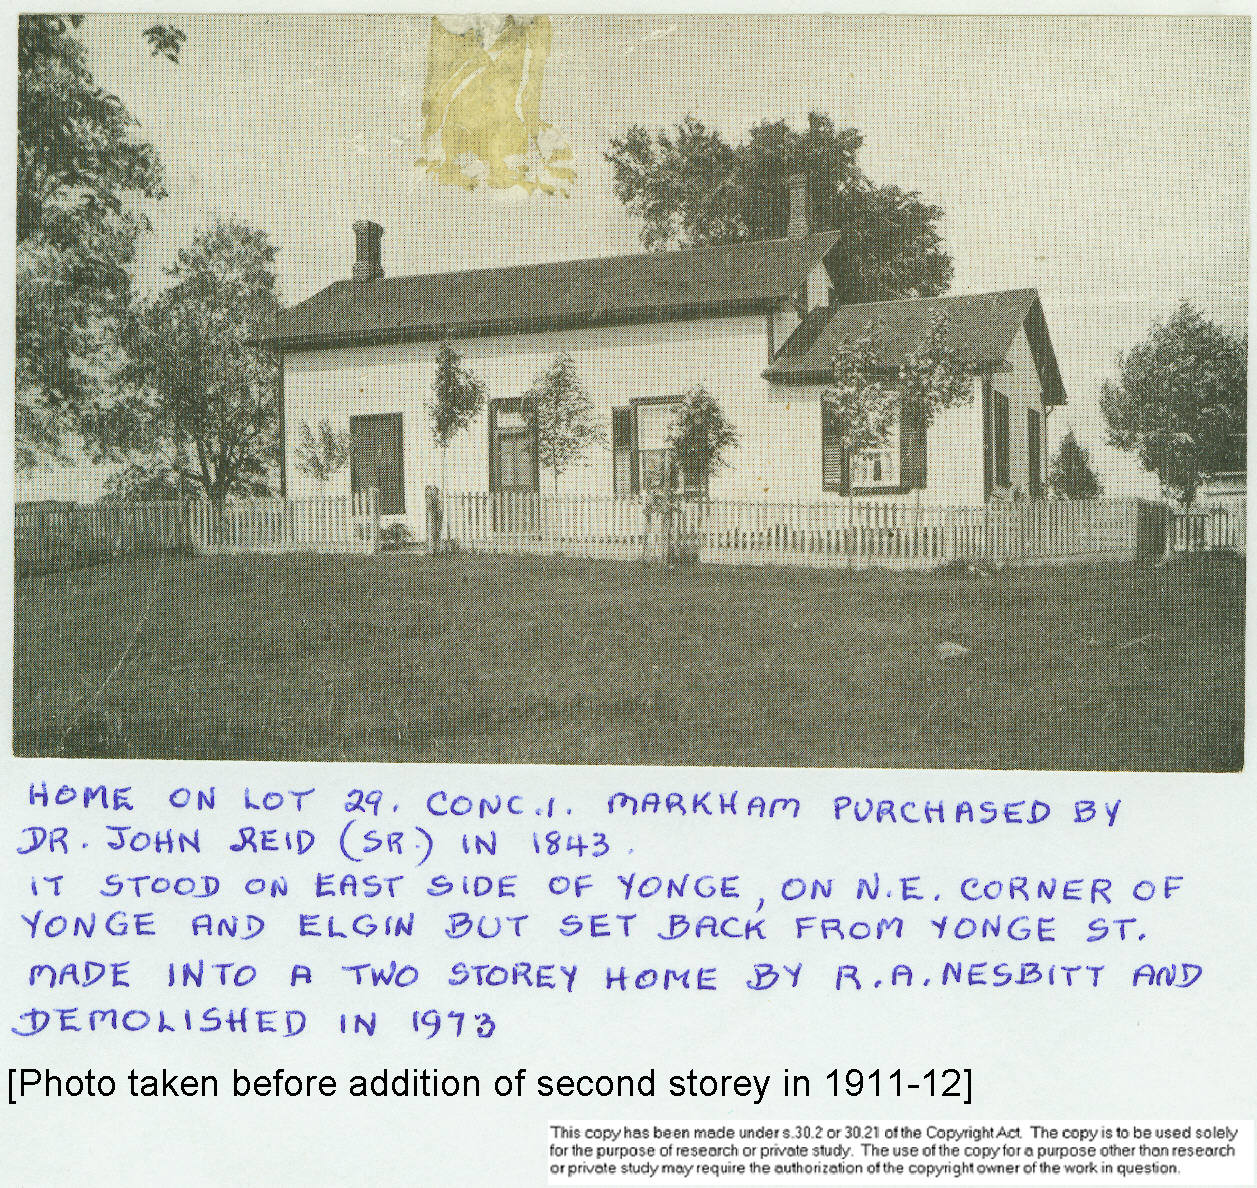 HOME ON LOT 29. CONC.1. MARKHAM PURCHASED BY
DR. JOHN REID (SR.) IN 1843.
IT STOOD ON EAST SIDE OF YONGE, ON N.E. CORNER OF
YONGE AND ELGIN BUT SET BACK FROM YONGE ST.
MADE INTO A TWO STOREY HOME BY R.A. NESBITT AND
DEMOLISHED IN 1973
[Photo taken before addition of second storey in 1911-12]
This copy has been made under s.30.2 or 30.21 of the Copyright Act. The copy is to be used solely
for the purpose of research or private study. The use of the copy for a purpose other than research
or private study may require the authorization of the copyright owner of the work in question.